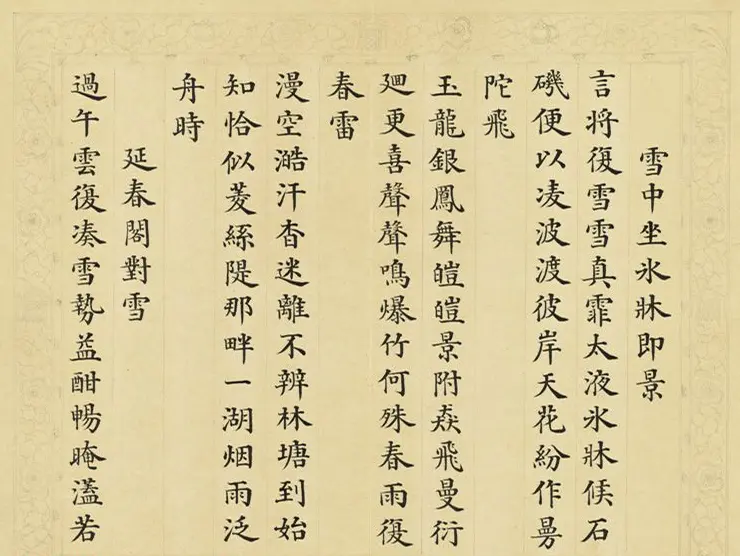 雪中坐氷牀即景
言將復雪雪真霏太液氷牀候石
磯便以凌波渡彼岸天花紛作曼
陀飛
玉龍銀鳳舞皚皚景附猋飛曼衍
廻更喜聲聲鳴爆竹何殊春雨復
春雷
漫空澔汗杳迷離不辨林塘到始
知恰似菱絲隄那畔一湖烟雨泛
舟時
延春閣對雪
過午雲復凑雪勢益酣暢晻溘若